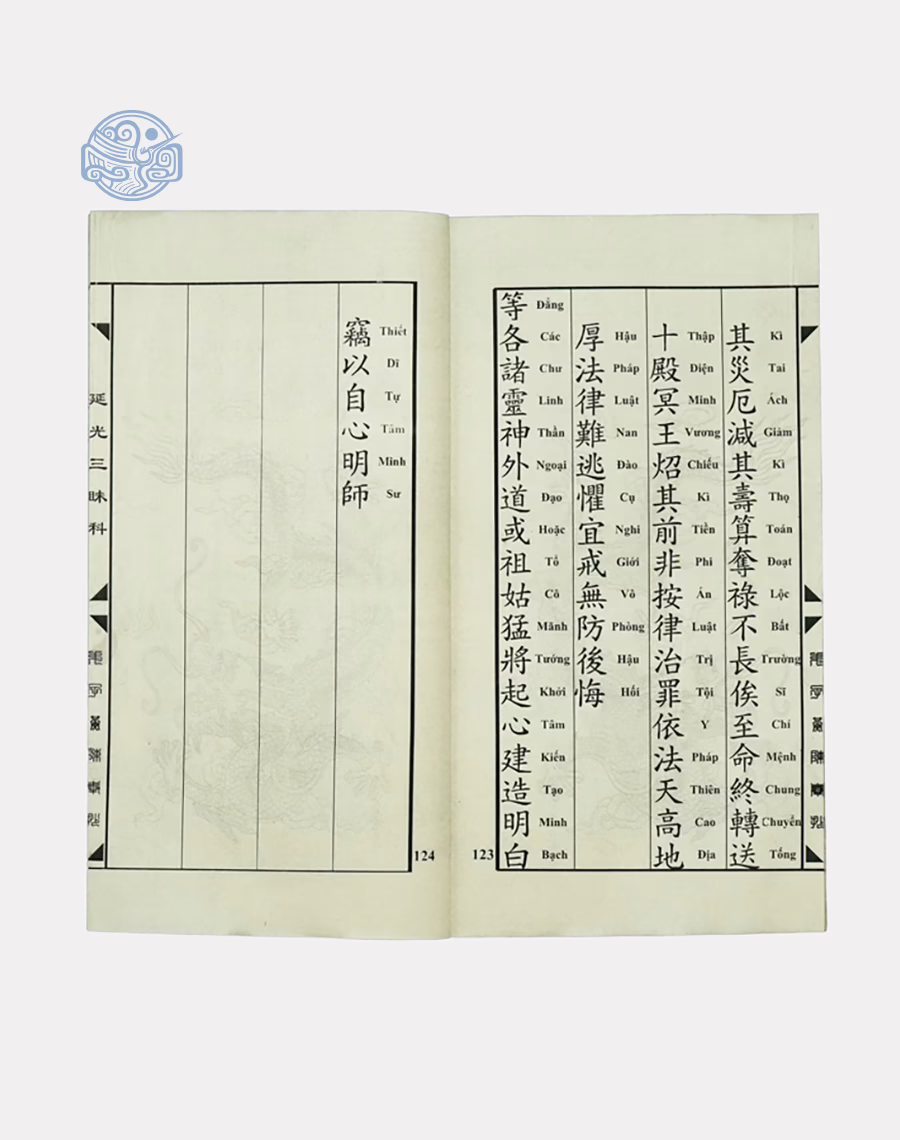 其災厄減其壽算奪祿不長俟至命終轉送
Kì Tai Ách Giảm Kì Thọ Toán Đoạt Lộc Bất Trường Sĩ Chí Mệnh Chung Chuyển Tống
十殿冥王炤其前非按律治罪依法天高地
Thập Diện Minh Vương Chiếu Kì Tiền Phi Án Luật Trị Tội Y Pháp Thiên Cao Địa
厚法律難逃懼宜戒無防後悔
Hậu Pháp Luật Nan Đào Cụ Nghi Giới Vô Phòng Hậu Hối
等各諸靈神外道或祖姑猛將起心建造明白
Đẳng Các Chư Linh Thần Ngoại Đạo Hoặc Tổ Cô Mãnh Tướng Khởi Tâm Kiến Tạo Minh Bạch
123
竊以自心明師
Thiết Dĩ Tự Tâm Minh Sư
124
延光三昧科